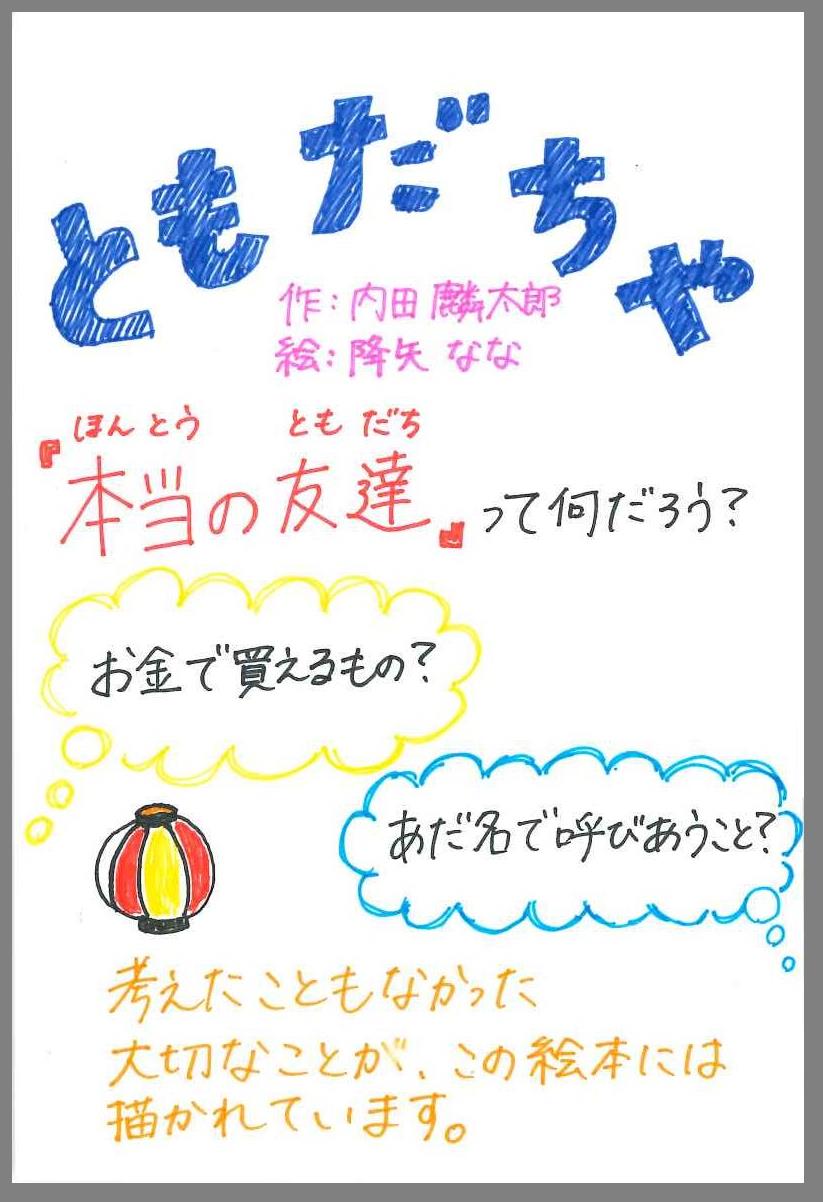 ともだちや
作：内田 麟太郎
絵：降矢 なな
ほんとう ともだち
『本当の友達』って何だろう？
お金で買えるもの？
あだ名で呼びあうこと？
考えたこともなかった
大切なことが、この絵本には
描かれています。